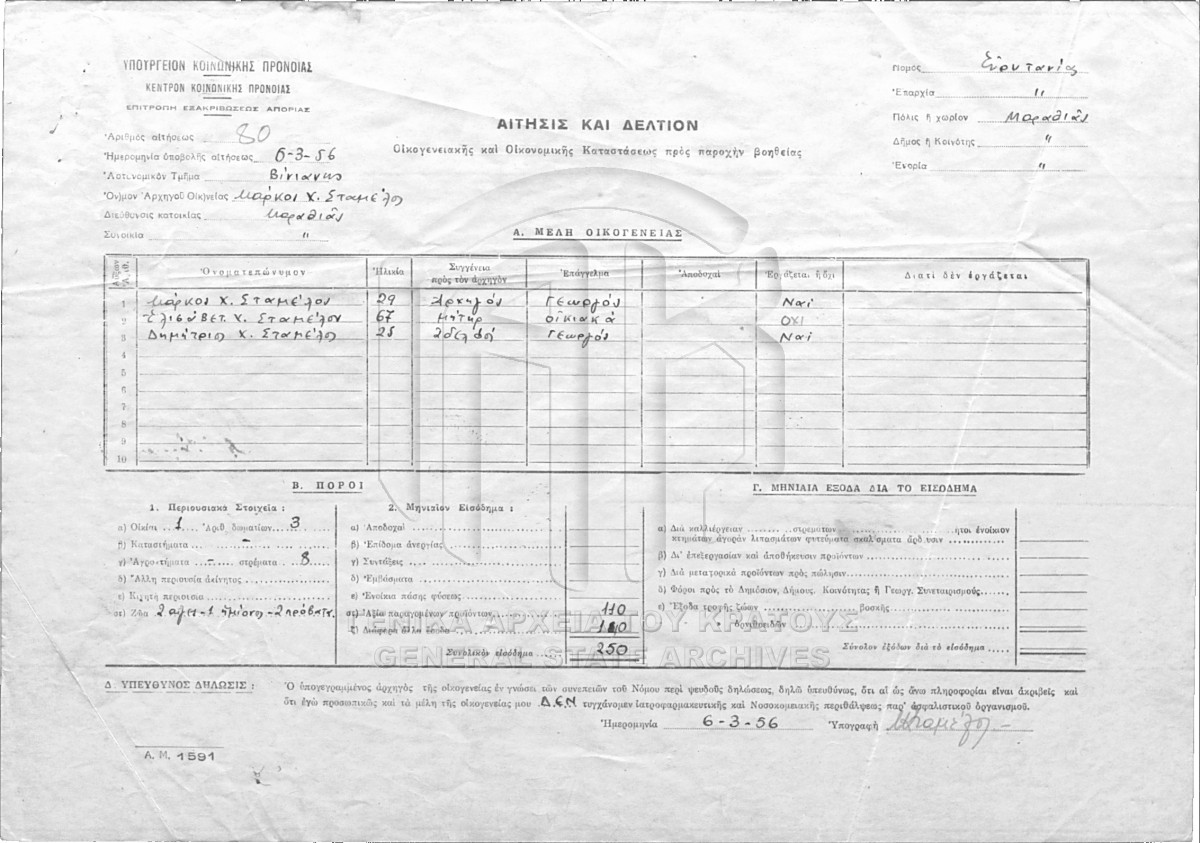 ΥΠΟΥΡΓΕΙΟΝ ΚΟΙΝΩΝΙΚΗΣ ΠΡΟΝΟΙΑΣ
ΚΕΝΤΡΟΝ ΚΟΙΝΩΝΙΚΗΣ ΠΡΟΝΟΙΑΣ
ΕΠΙΤΡΟΠΗ ΕΞΑΚΡΙΒΩΣΕΩΣ ΑΠΟΡΙΑΣ
Ἀριθμὸς αἰτήσεως 80
Ἡμερομηνία ὑποβολῆς αἰτήσεως 6-3-56
Ἀστυνομικὸν Τμῆμα Βίνιανης
Ὀν)μον Ἀρχηγοῦ Οἰκ)νείας Μάρκος Χ. Σταμέλος
Διεύθυνσις κατοικίας Μαραθιᾶς
Συνοικία "
Νομὸς Εὐρυτανίας
Ἐπαρχία "
Πόλις ἢ χωρίον Μαραθιᾶς
Δῆμος ἢ Κοινότης "
Ἐνορία "
ΑΙΤΗΣΙΣ ΚΑΙ ΔΕΛΤΙΟΝ
Οἰκογενειακῆς καὶ Οἰκονομικῆς Καταστάσεως πρὸς παροχὴν βοηθείας
Α. ΜΕΛΗ ΟΙΚΟΓΕΝΕΙΑΣ
Αὔξων ἀριθ. Ὀνοματεπώνυμον Ἡλικία Συγγένεια πρὸς τὸν ἀρχηγὸν Ἐπάγγελμα Ἀποδοχαί Ἐργάζεται ἢ ὄχι Διατί δὲν ἐργάζεται
1 Μάρκος Χ. Σταμέλος 29 Ἀρχηγός Γεωργός Ναί
2 Ἐλισάβετ. Χ. Σταμέλου 67 Μήτηρ οἰκιακά ΟΧΙ
3 Δημήτριος Χ. Σταμέλος 25 ἀδελφός Γεωργός Ναί
4
5
6
7
8
9
10
Β. ΠΟΡΟΙ
1. Περιουσιακὰ Στοιχεῖα :
α) Οἰκίαι 1 Ἀριθ. δωματίων 3
β) Καταστήματα -
γ) Ἀγροκτήματα - στρέματα 8
δ) Ἄλλη περιουσία ἀκίνητος
ε) Κινητὴ περιουσία
στ) Ζῶα 2 αἶγες-1 ἡμίονον-2 πρόβατα.
2. Μηνιαῖον Εἰσόδημα :
α) Ἀποδοχαὶ
β) Ἐπίδομα ἀνεργίας
γ) Συντάξεις
δ) Ἐμβάσματα
ε) Ἐνοίκια πάσης φύσεως
στ) Ἀξία παραγομένων προϊόντων 110
ζ) Διάφορα ἄλλα ἔσοδα 140
Συνολικὸν εἰσόδημα 250
Γ. ΜΗΝΙΑΙΑ ΕΞΟΔΑ ΔΙΑ ΤΟ ΕΙΣΟΔΗΜΑ
α) Διὰ καλλιέργειαν στρεμμάτων ἤτοι ἐνοίκιον
κτημάτων ἀγορὰν λιπασμάτων φυτεύματα σκαλίσματα ἄρδευσιν
β) Δι' ἐπεξεργασίαν καὶ ἀποθήκευσιν προϊόντων
γ) Διὰ μεταφορικὰ προϊόντων πρὸς πώλησιν
δ) Φόροι πρὸς τὸ Δημόσιον, Δήμους, Κοινότητας ἢ Γεωργ. Συνεταιρισμούς
ε) Ἔξοδα τροφῆς ζώων βοσκῆς
" ὀρνιθοειδῶν
Σύνολον ἐξόδων διὰ τὸ εἰσόδημα
ΓΕΝΙΚΑ ΑΡΧΕΙΑ ΤΟΥ ΚΡΑΤΟΥΣ
GENERAL STATE ARCHIVES
Δ. ΥΠΕΥΘΥΝΟΣ ΔΗΛΩΣΙΣ :
Ὁ ὑπογεγραμμένος ἀρχηγὸς τῆς οἰκογενείας ἐν γνώσει τῶν συνεπειῶν τοῦ Νόμου περὶ ψευδοῦς δηλώσεως, δηλῶ ὑπευθύνως, ὅτι αἱ ὡς ἄνω πληροφορίαι εἶναι ἀκριβεῖς καὶ
ὅτι ἐγὼ προσωπικῶς καὶ τὰ μέλη τῆς οἰκογενείας μου ΔΕΝ τυγχάνομεν ἰατροφαρμακευτικῆς καὶ Νοσοκομειακῆς περιθάλψεως παρ' ἀσφαλιστικοῦ ὀργανισμοῦ.
Ἡμερομηνία 6-3-56 Ὑπογραφὴ ΜΣταμέλος
Α. Μ. 1591